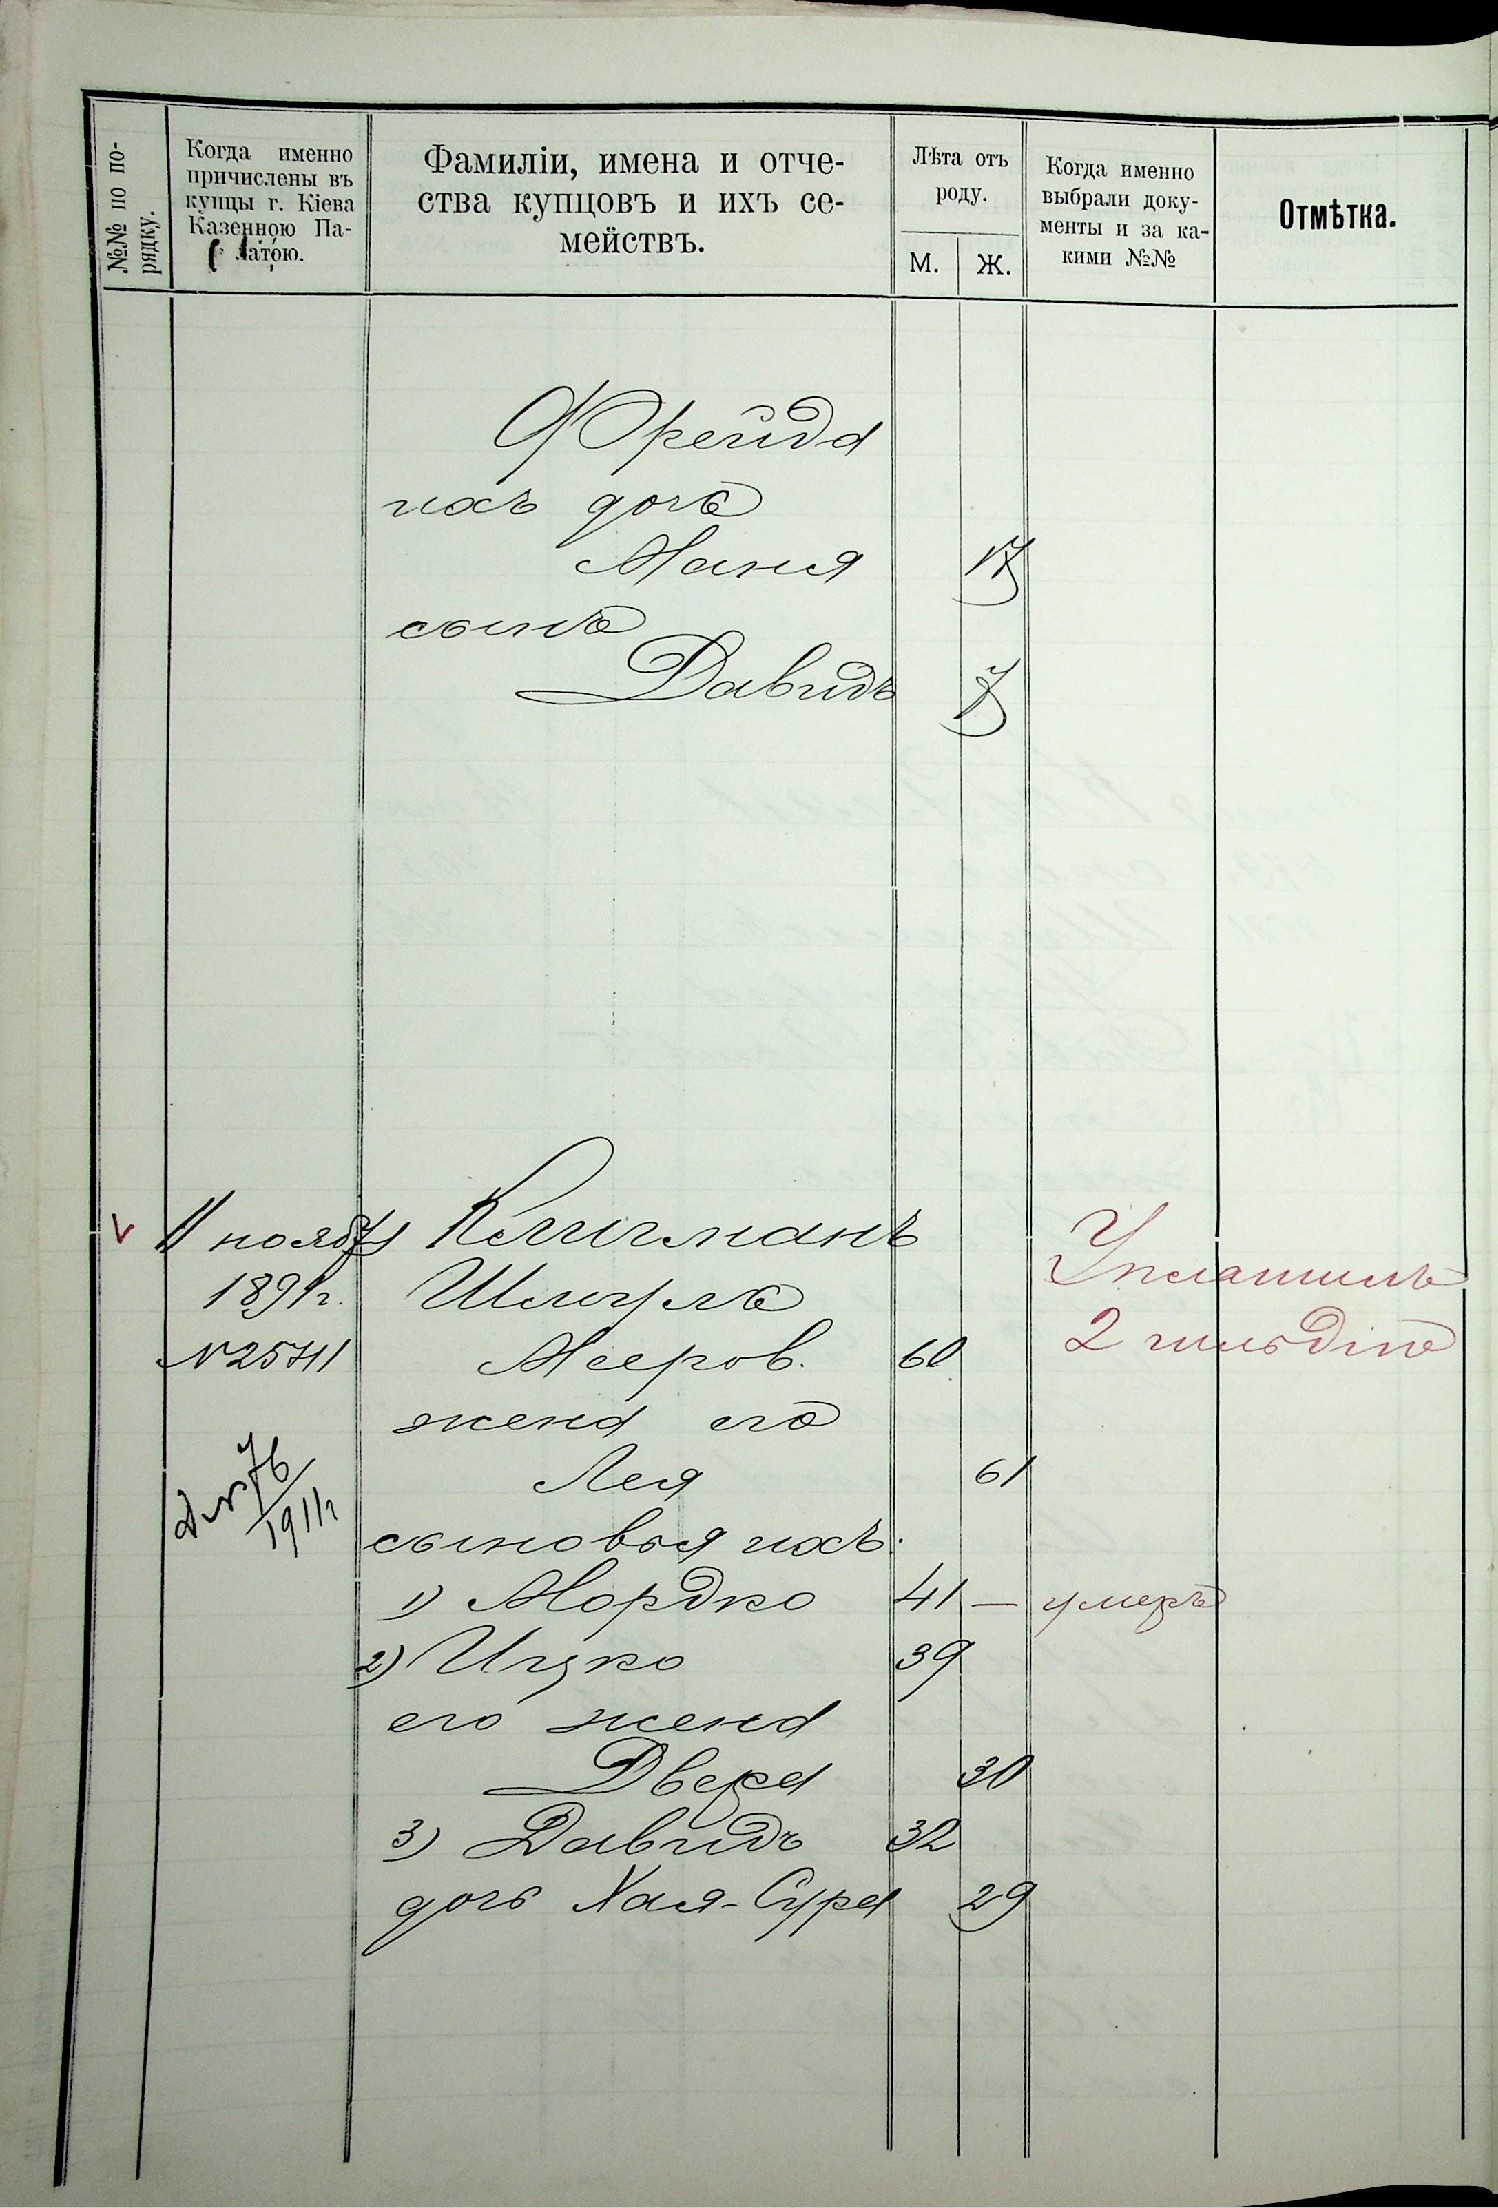 №№ по по-
рядку.
Когда именно
причислены въ
купцы г. Кіева
Казенною Па-
латою.
Фамиліи, имена и отче-
ства купцовъ и ихъ се-
мействъ.
Лѣта отъ
роду.
М. Ж.
Когда именно
выбрали доку-
менты и за ка-
кими №№
Отмѣтка.
Фрейда
ихъ дочь
Маня 17
сынъ
Давидъ 7
11 ноября Клигманъ Уплатилъ
1891 г. Шмуль 2 гильдію
№ 2541 Мееров. 60
жена его
Лея 61
№ 76/1911 г
сыновья ихъ
1) Мордко 41 — умеръ
2) Ицко 39
его жена
Двера 30
3) Давидъ 32
дочь Хая-Сура 29